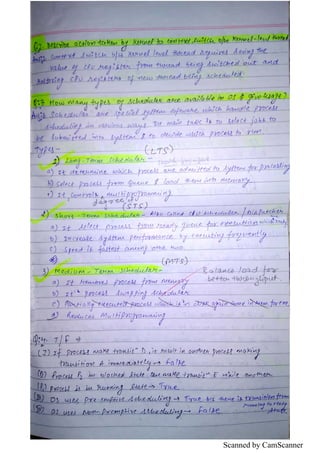 Q: Describe action taken by kernel to context switch b/w kernel-level thread
Ans: Context switch b/w kernel thread requires saving the
value of CPU register from thread being switched out and
restoring CPU registers of new thread being scheduled.
Q: How many types of schedular are available in OS & give usage?
Ans: Schedular are special system software which handle process
scheduling in various ways. Its main task is to select job to
be submitted into system & to decide which process to run.
Types -
(LTS)
1) Long-Term Schedular -
a) It determine which process are admitted to system for processing
b) Select process from queue & load them into memory.
c) It controls multiprogramming
degree of
(STS)
2) Short-Term Schedular - Also called CPU schedular / dispatcher
a) It select process from ready queue for execution
b) Increase system performance by executing frequently
c) Speed is fastest among other two.
(MTS)
3) Medium-Term Schedular - Balance load for
better throughput
a) It removes process from memory
b) It is process swapping schedular
c) Partially executed process which is in
d) Reduces Multiprogramming
T/F →
If process make transit^n D, it result in another process making
transition A immediately → False
Process P2 in blocked state can make transit^n E while another
process is in Running state → True
OS uses Preemptive scheduling → True as there is transition from
running to ready
state
OS uses Non Preemptive Scheduling → False
Scanned by CamScanner